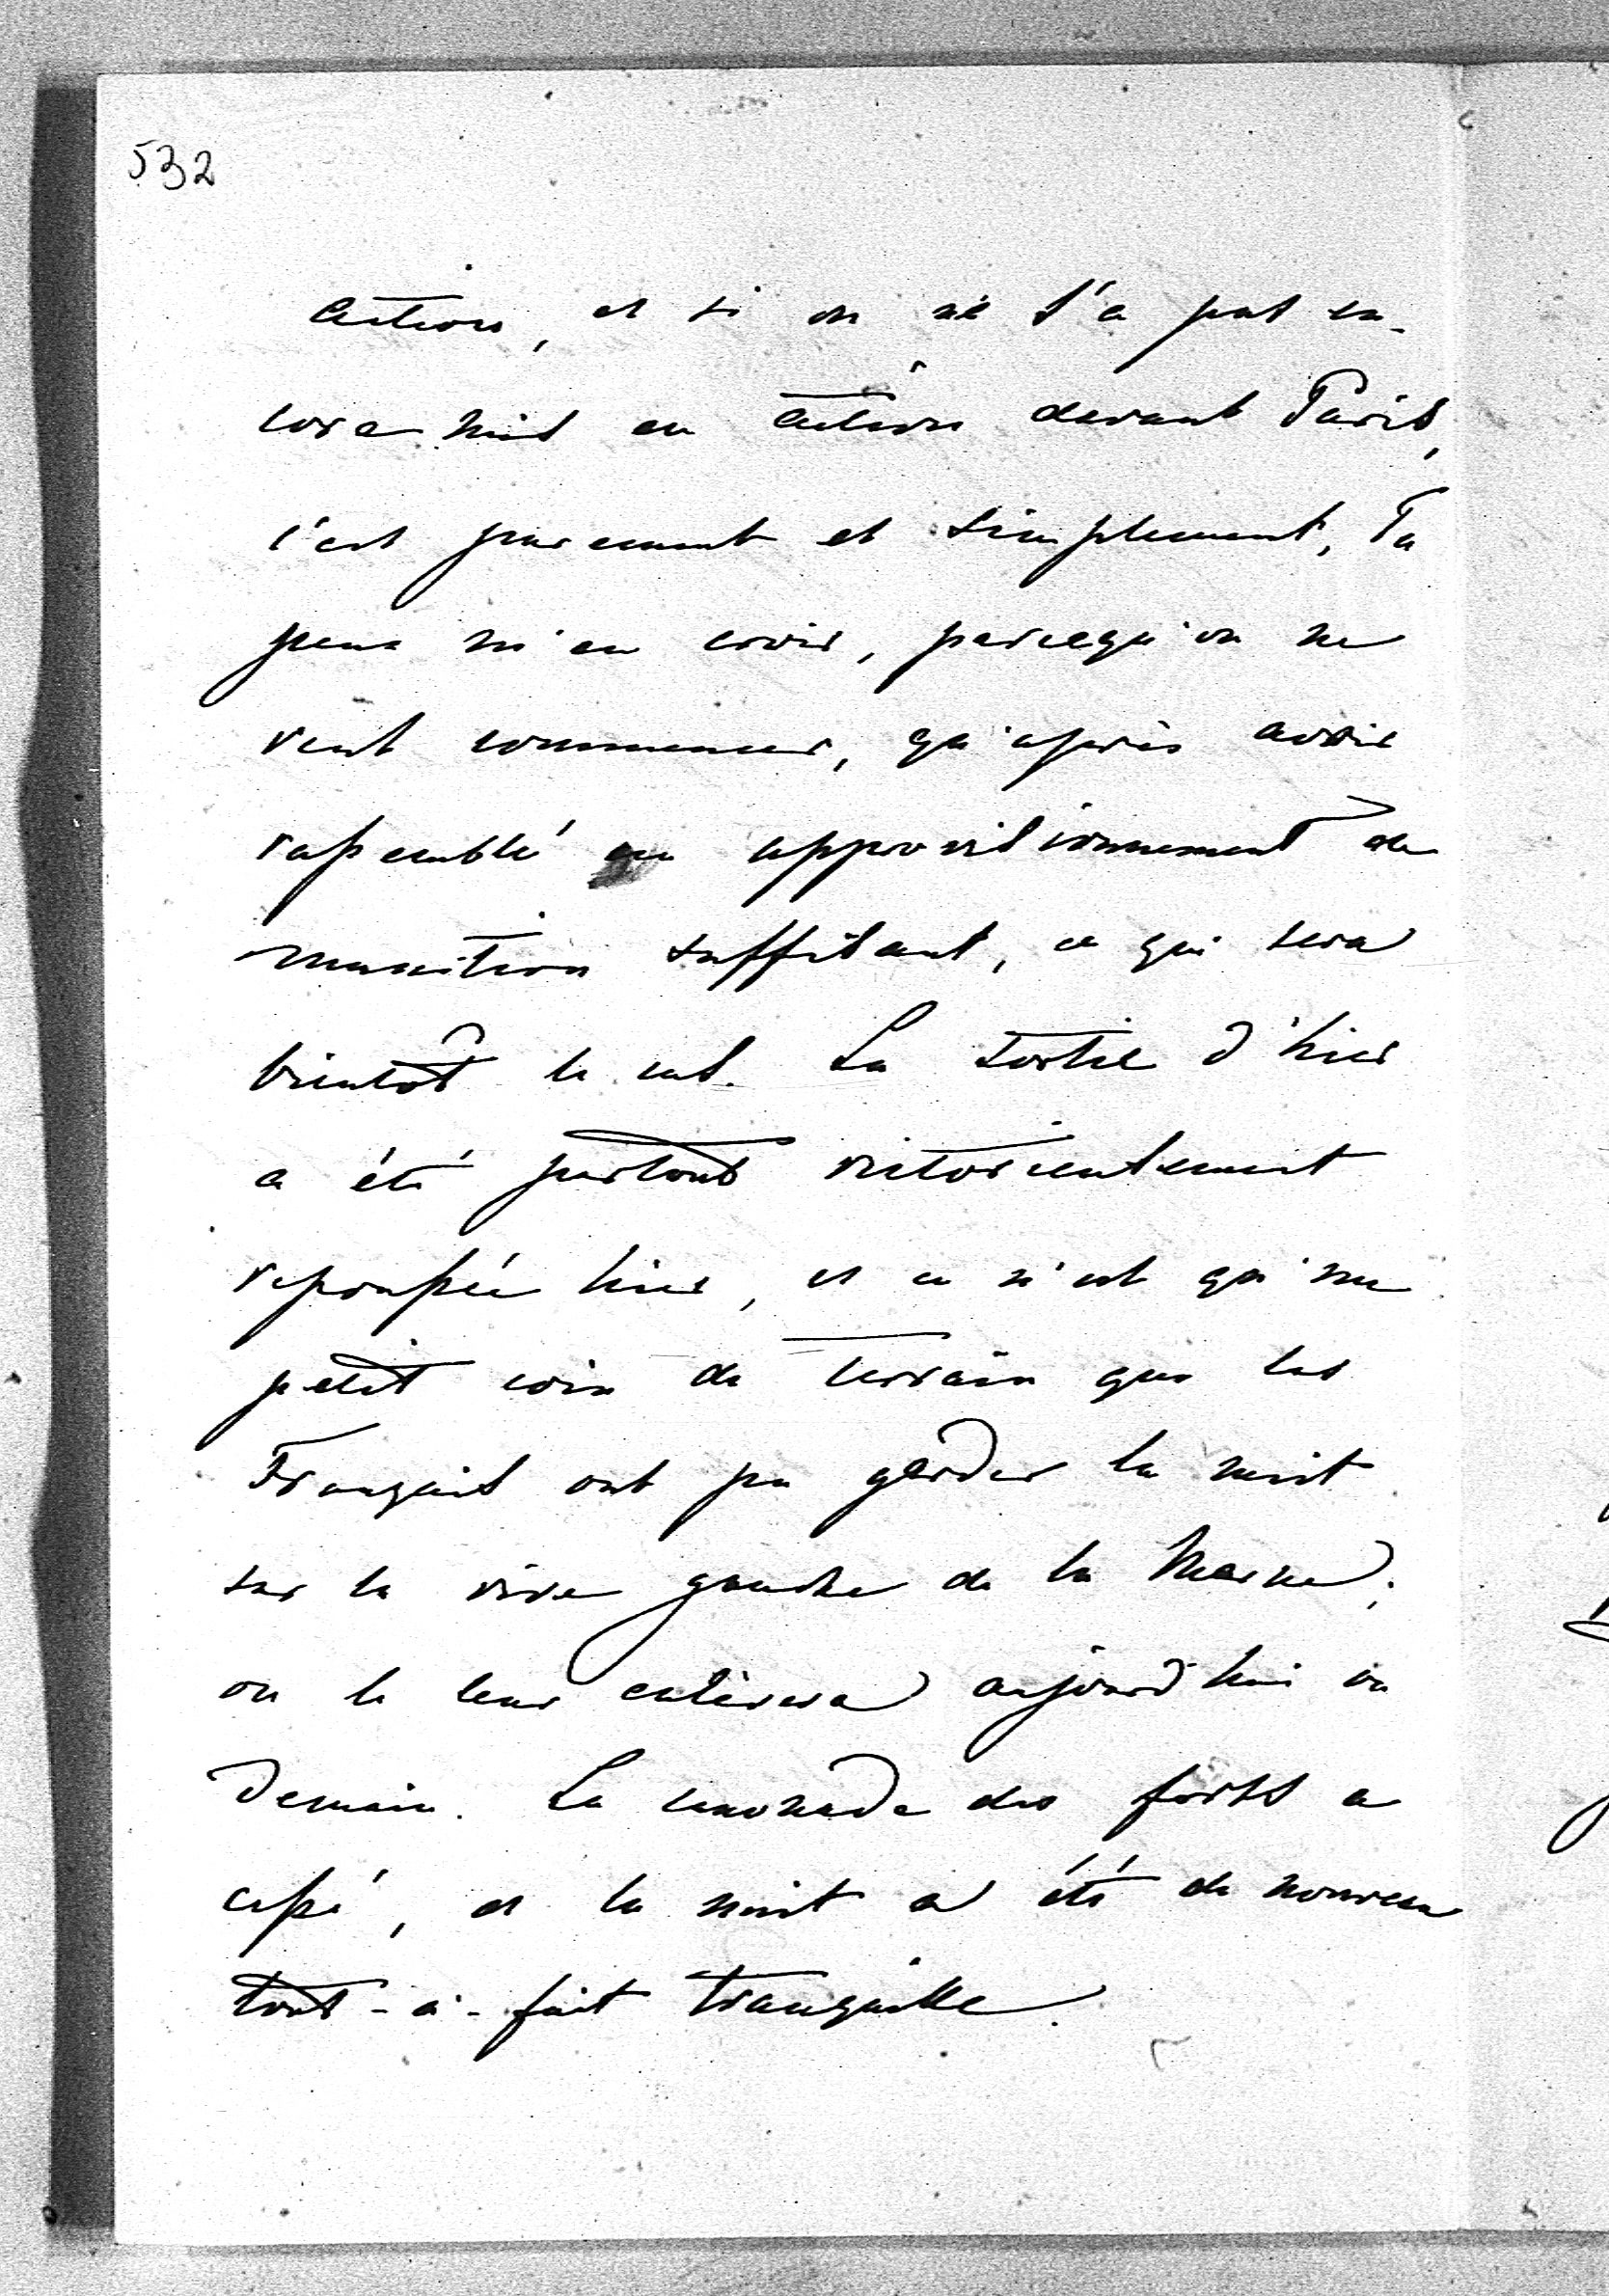 532
action, et si on ne l'a pas en-
core mis en action devant Paris,
c'est purement et simplement, Tu
peux m'en croire, parcequ'on ne
veut commencer, qu'après avoir
rassemblé un approvisionnement de
munition suffisant, ce qui sera
bientôt le cas. La sortie d'hier
a été partout victorieusement
repoussée hier, et ce n'est qu'un
petit coin de terrain que les
Français ont pu garder la nuit
sur la rive gauche de la Marne;
on le leur enlèvera aujourd'hui ou
demain. La canonade des forts a
cessé, et la nuit a été de nouveau
tout-à-fait tranquille.